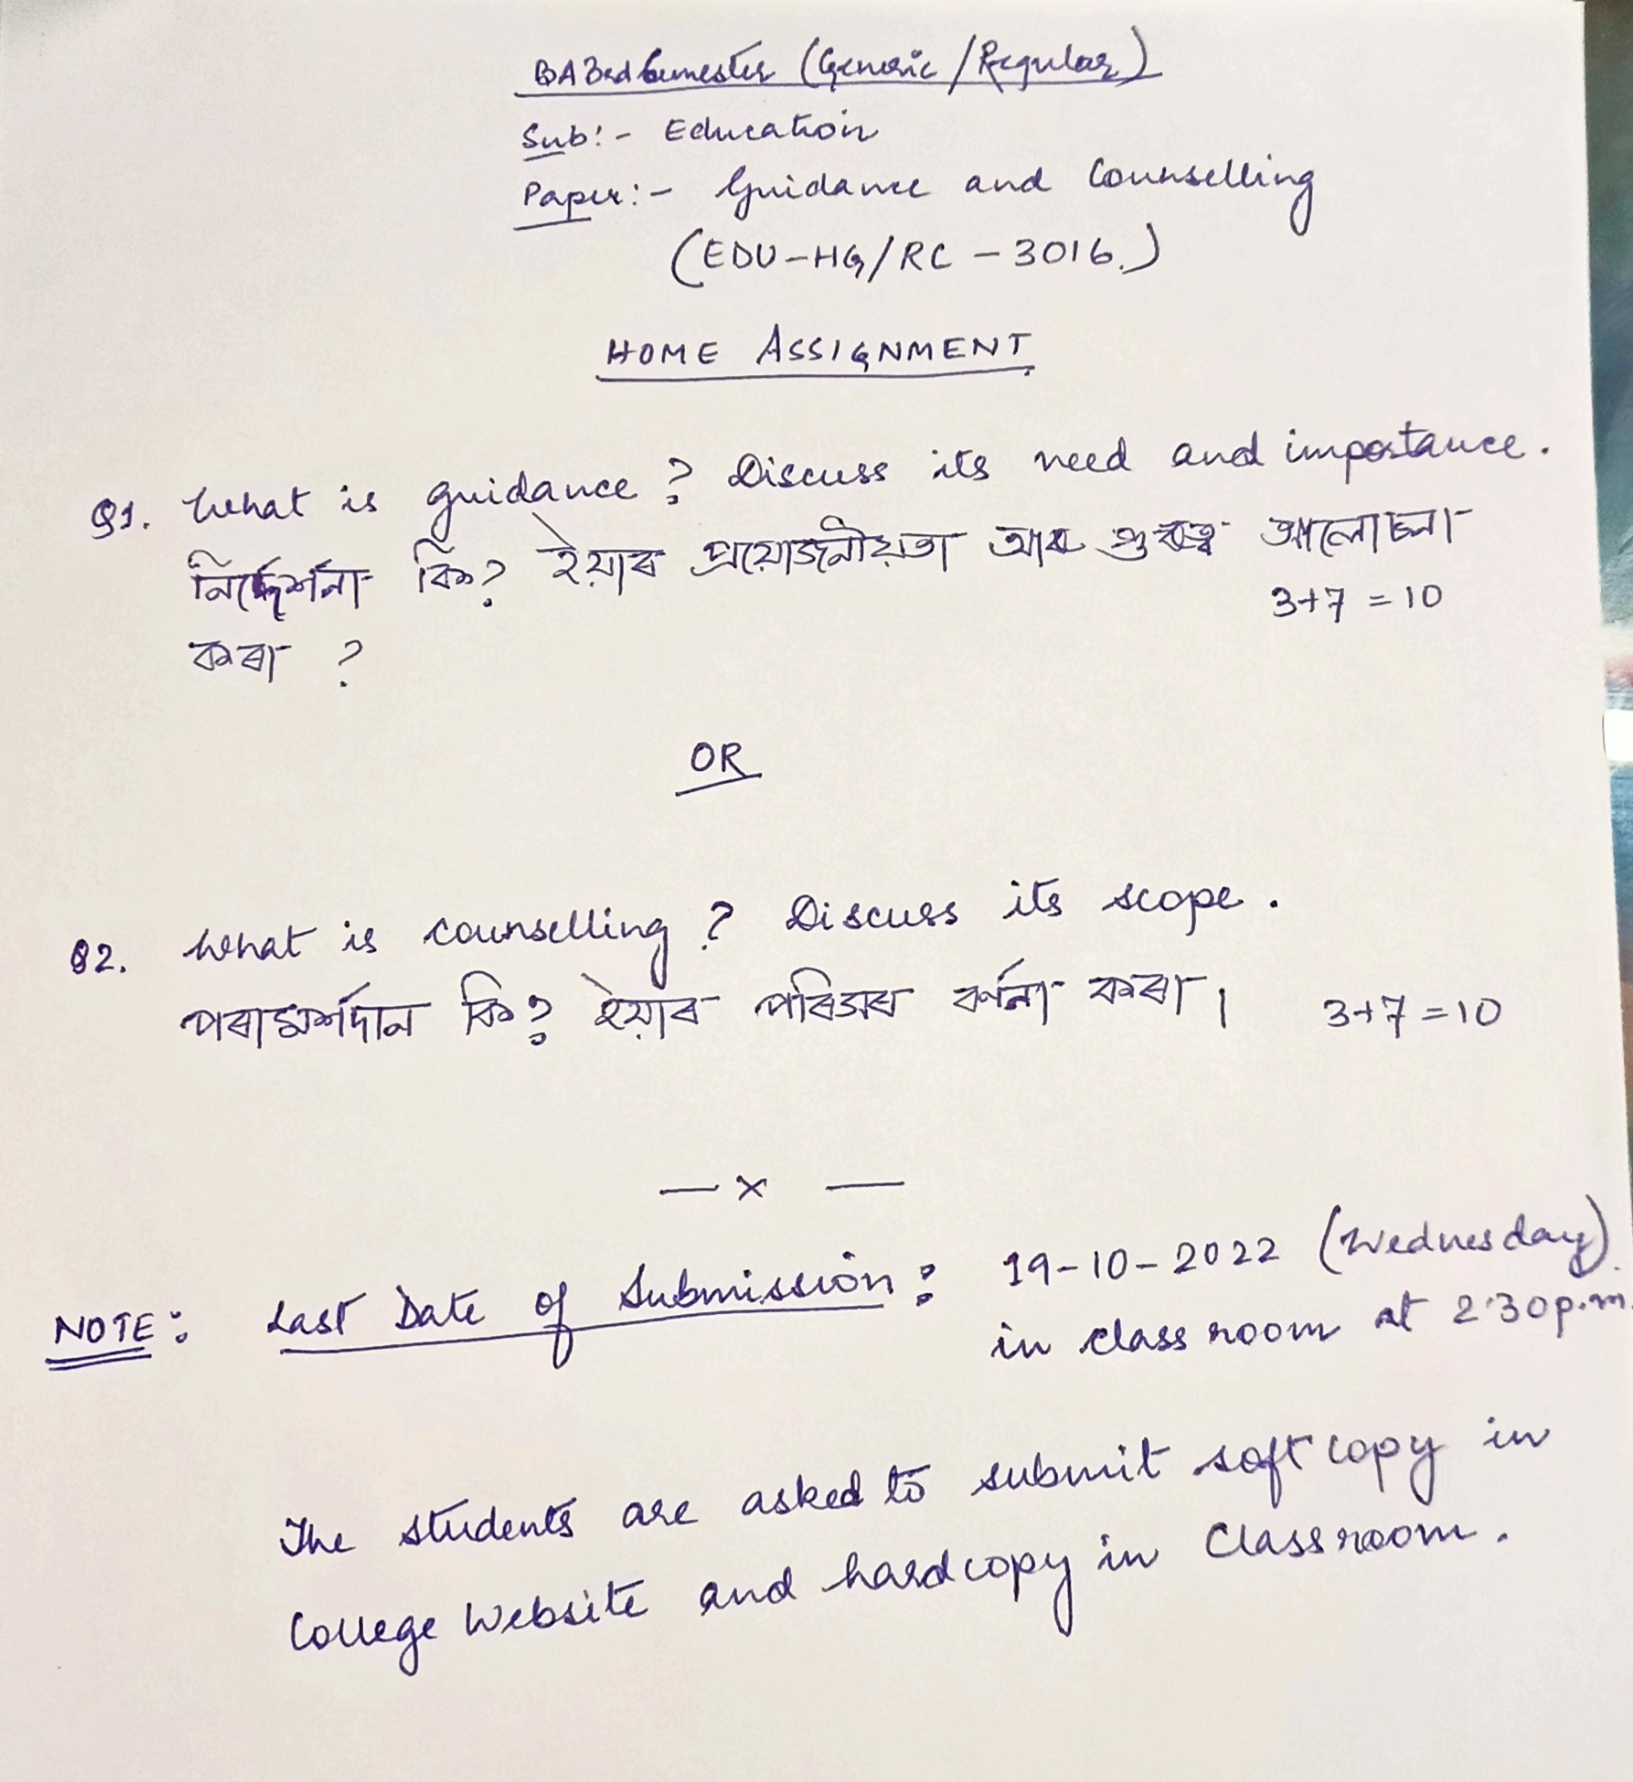 BA 3rd Semester (Generic/Regular)
Sub:- Education
Paper:- Guidance and Counselling
(EDU-HG/RC-3016.)
HOME ASSIGNMENT
Q1. What is guidance? Discuss its need and importance.
নির্দ্দেশনা কি? ইয়াৰ প্ৰয়োজনীয়তা আৰু গুৰুত্ব আলোচনা
3+7=10
কৰা ?
OR
Q2. What is counselling? Discuss its scope.
পৰামৰ্শদান কি? ইয়াৰ পৰিসৰ বৰ্ণনা কৰা। 3+7=10
— x —
NOTE: Last Date of Submission: 19-10-2022 (Wednesday)
in class room at 2:30p.m.
The students are asked to submit soft copy in
College Website and hardcopy in Classroom.